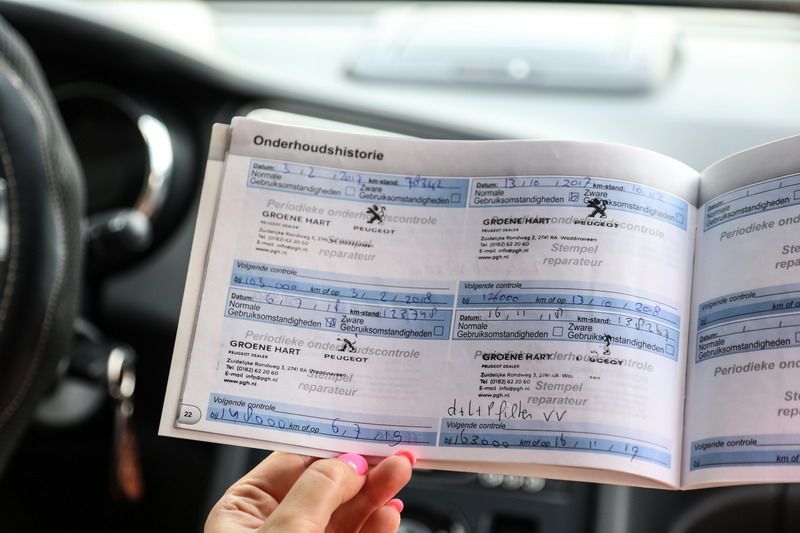 Onderhoudshistorie
Datum: 3, 2, 2017 km-stand: 78342
Normale Gebruiksomstandigheden Zware Gebruiksomstandigheden
Periodieke onderhoudscontrole
GROENE HART
PEUGEOT DEALER
PEUGEOT
Zuidelijke Rondweg 3, 2741 RA Waddinxveen
Tel. (0182) 62 20 60
E-mail info@pgh.nl
www.pgh.nl
Stempel
reparateur
Volgende controle
bij 103.000 km of op 3, 2, 2018
Datum: 13, 10, 2017 km-stand:
Normale Gebruiksomstandigheden Zware Gebruiksomstandigheden
Periodieke onderhoudscontrole
GROENE HART
PEUGEOT DEALER
PEUGEOT
Zuidelijke Rondweg 3, 2741 RA Waddinxveen
Tel. (0182) 62 20 60
E-mail info@pgh.nl
www.pgh.nl
Stempel
reparateur
Volgende controle
bij 126000 km of op 13, 10, 2018
Datum: 6, 7, 18 km-stand: 123748
Normale Gebruiksomstandigheden Zware Gebruiksomstandigheden
Periodieke onderhoudscontrole
GROENE HART
PEUGEOT DEALER
PEUGEOT
Zuidelijke Rondweg 3, 2741 RA Waddinxveen
Tel. (0182) 62 20 60
E-mail info@pgh.nl
www.pgh.nl
Stempel
reparateur
Volgende controle
bij 148000 km of op 6, 7, 19
22
Datum: 16, 11, 18 km-stand: 138267
Normale Gebruiksomstandigheden Zware Gebruiksomstandigheden
Periodieke onderhoudscontrole
GROENE HART
PEUGEOT DEALER
PEUGEOT
Zuidelijke Rondweg 3, 2741 RA Waddinxveen
Tel. (0182) 62 20 60
E-mail info@pgh.nl
www.pgh.nl
Stempel
reparateur
d+l+P filter VV
Volgende controle
bij 163000 km of op 16, 11, 19
Datum:
Normale
Gebruiksomstandigheden
Periodieke on
Volgende controle
bij km of
Datum:
Normale
Gebruiksomstandigheden
Periodieke
Volgende controle
bij km of